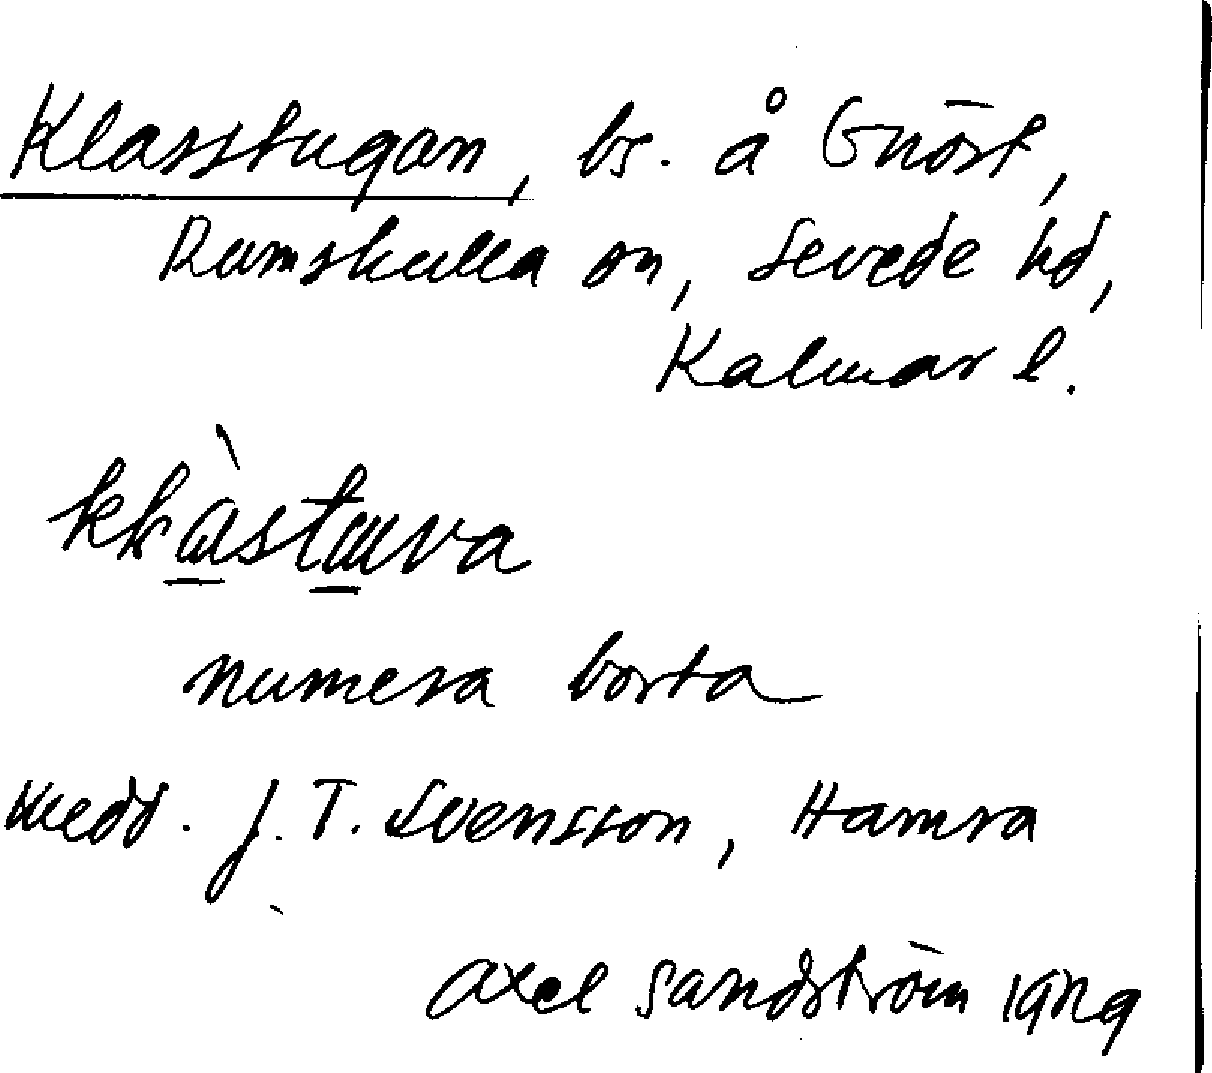 Klasstugan, bs. å Gnöst,
Rumskulla sn, Sevede hd,
Kalmar l.
numera borta
Medd. J. T. Svensson, Hamra
Axel Sandström 1929